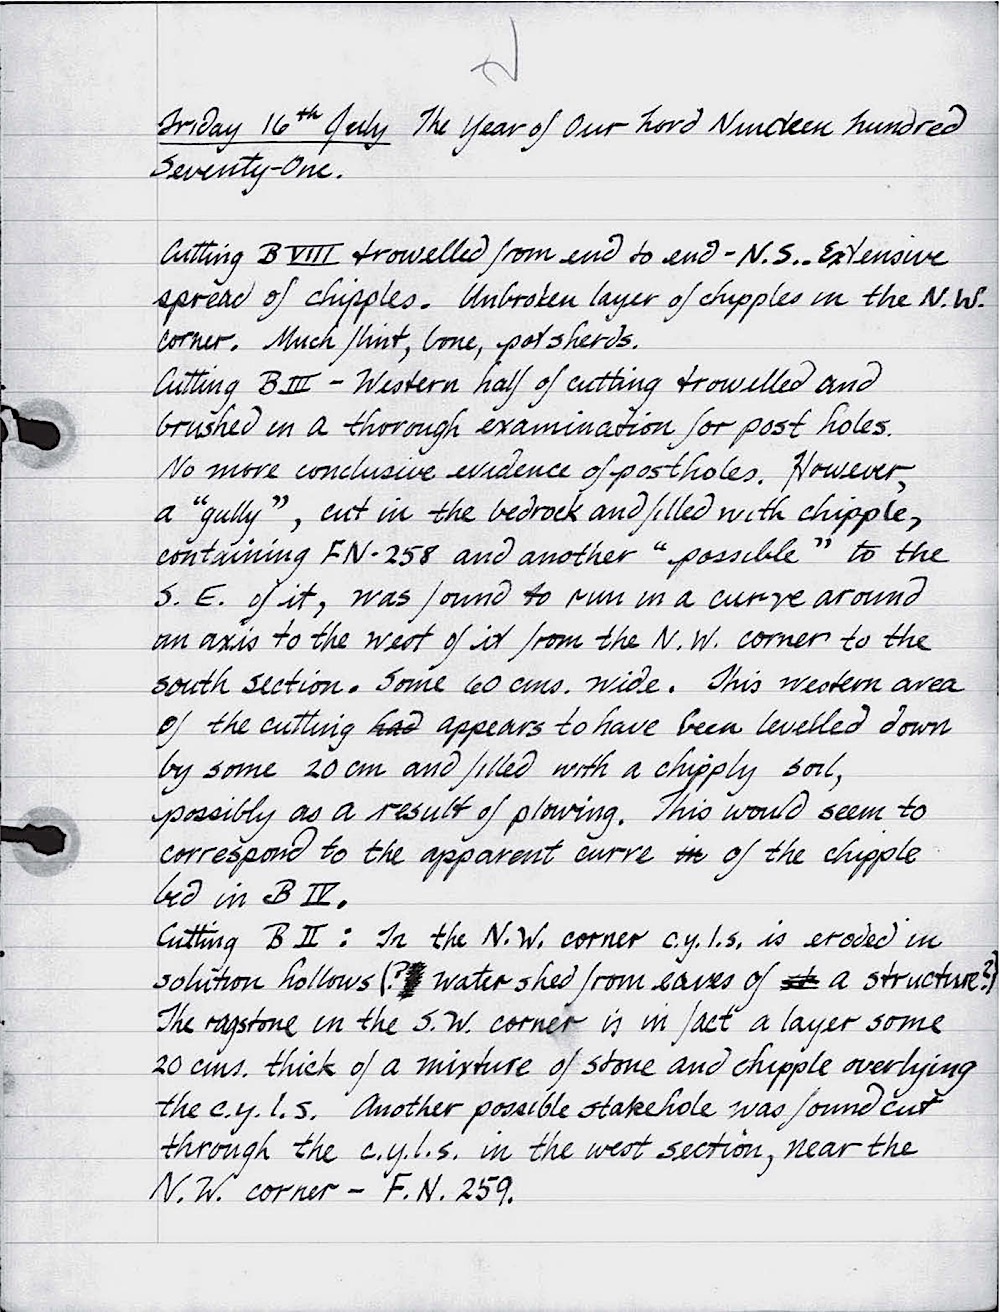 Friday 16th July The Year of Our Lord Nineteen hundred
Seventy-One.
Cutting B VIII trowelled from end to end - N.S.. Extensive
spread of chipples. Unbroken layer of chipples in the N.W.
corner. Much flint, bone, potsherds.
Cutting B III - Western half of cutting trowelled and
brushed in a thorough examination for post holes.
No more conclusive evidence of postholes. However,
a "gully", cut in the bedrock and filled with chipple,
containing FN-258 and another "possible" to the
S. E. of it, was found to run in a curve around
an axis to the west of it from the N.W. corner to the
south section. Some 60 cms. wide. This western area
of the cutting had appears to have been levelled down
by some 20 cm and filled with a chipply soil,
possibly as a result of plowing. This would seem to
correspond to the apparent curve in of the chipple
bed in B IV.
Cutting B II : In the N.W. corner c.y.l.s. is eroded in
solution hollows (? water shed from eaves of st a structure?)
The ragstone in the S.W. corner is in fact a layer some
20 cms. thick of a mixture of stone and chipple overlying
the c.y.l.s. Another possible stakehole was found cut
through the c.y.l.s. in the west section, near the
N.W. corner - F.N. 259.